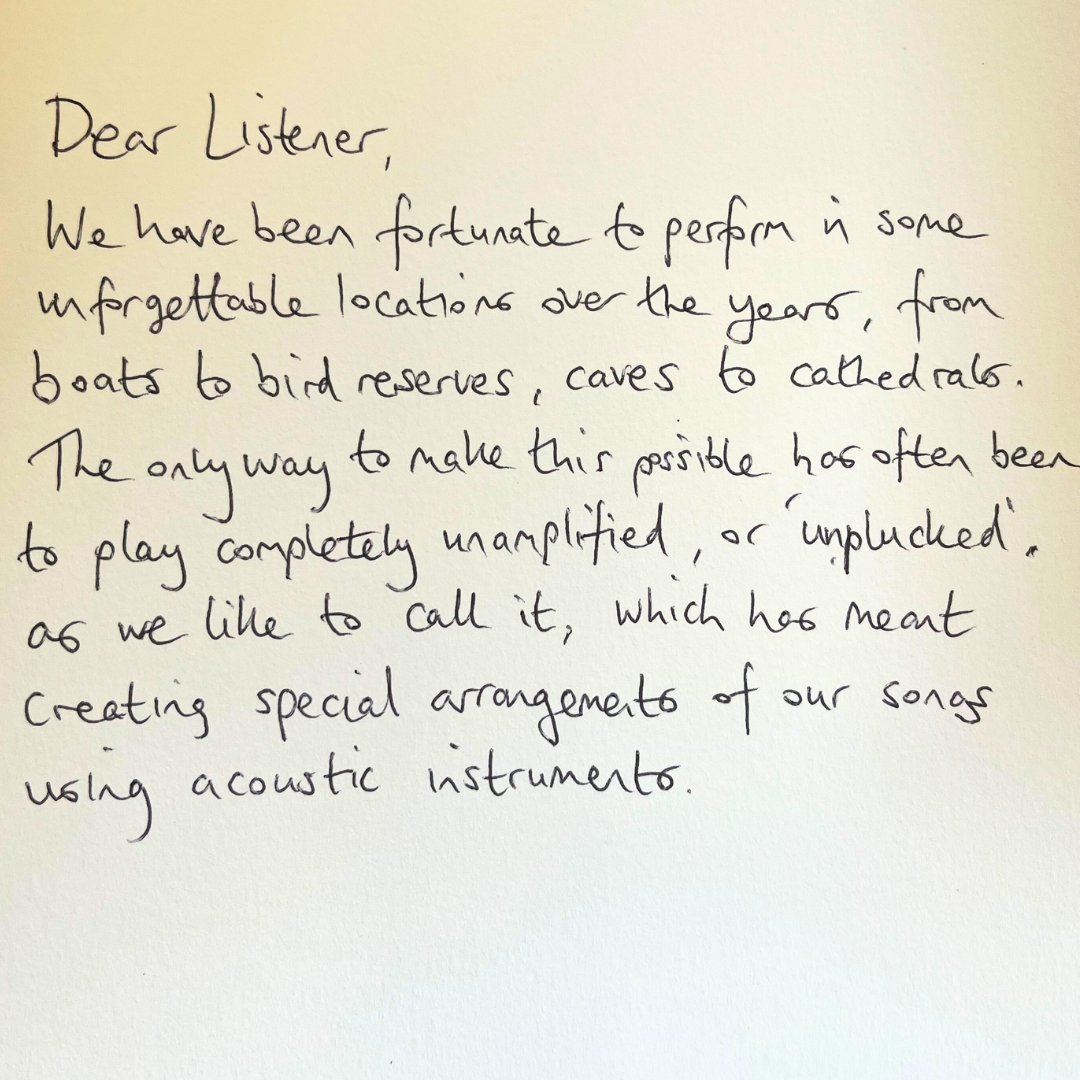 Dear Listener,
We have been fortunate to perform in some
unforgettable locations over the years, from
boats to bird reserves, caves to cathedrals.
The only way to make this possible has often been
to play completely unamplified, or 'unplucked'.
as we like to call it, which has meant
creating special arrangements of our songs
using acoustic instruments.